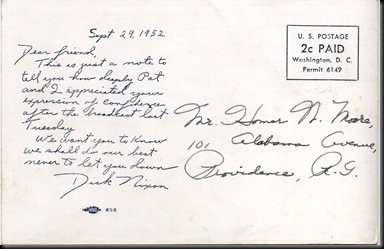 Sept 29, 1952
Dear friend,
This is just a note to
tell you how deeply Pat
and I appreciated your
expression of confidence
after the broadcast last
Tuesday
We want you to know
we shall do our best
never to let you down
Dick Nixon
458
U. S. POSTAGE
2c PAID
Washington, D. C.
Permit 6149
Mr. Homer N. Moore,
101 Alabama Avenue,
Providence, R.I.